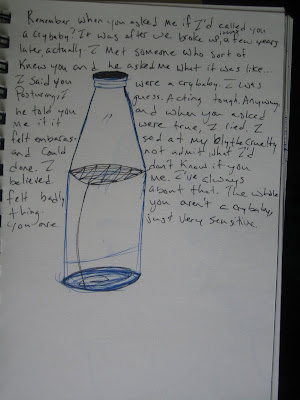 Remember when you asked me if I'd called you
a crybaby? It was after we broke up, a few years
later actually. I met someone who sort of
knew you and he asked me what it was like...
I said you were a crybaby. I was
Posturing, I guess. Acting tough. Anyway,
he told you and when you asked
me if it were true, I lied. I
felt embaras- sed at my blythe cruelty
and could not admit what I'd
done. I don't know if you
believed me. I've always
felt badly about that. The whole
thing. you aren't a crybaby,
You are just very sensitive.